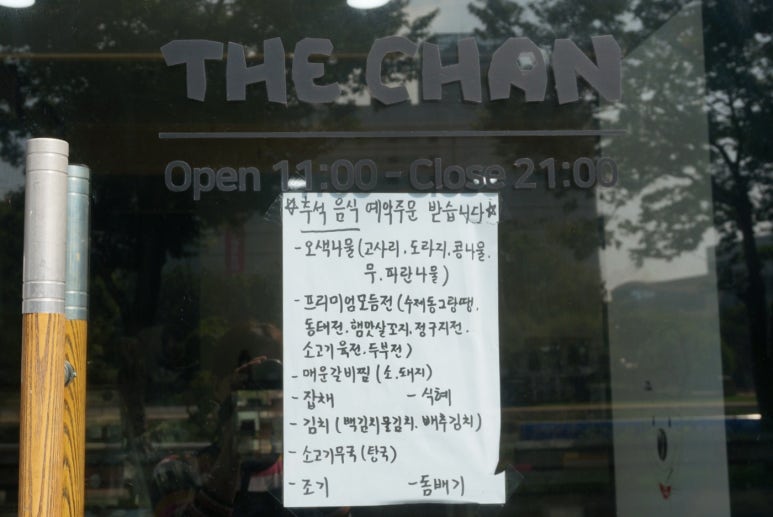 THE CHAN
Open 11:00 - Close 21:00
☆추석 음식 예약주문 받습니다☆
- 오색나물 (고사리, 도라지, 콩나물,
무, 파란나물)
- 프리미엄모듬전 (수제동그랑땡,
동태전, 햄맛살꼬지, 정구지전,
소고기육전, 두부전)
- 매운갈비찜 (소, 돼지)
- 잡채 - 식혜
- 김치 (백김치물김치, 배추김치)
- 소고기무국 (탕국)
- 조기 - 돔배기